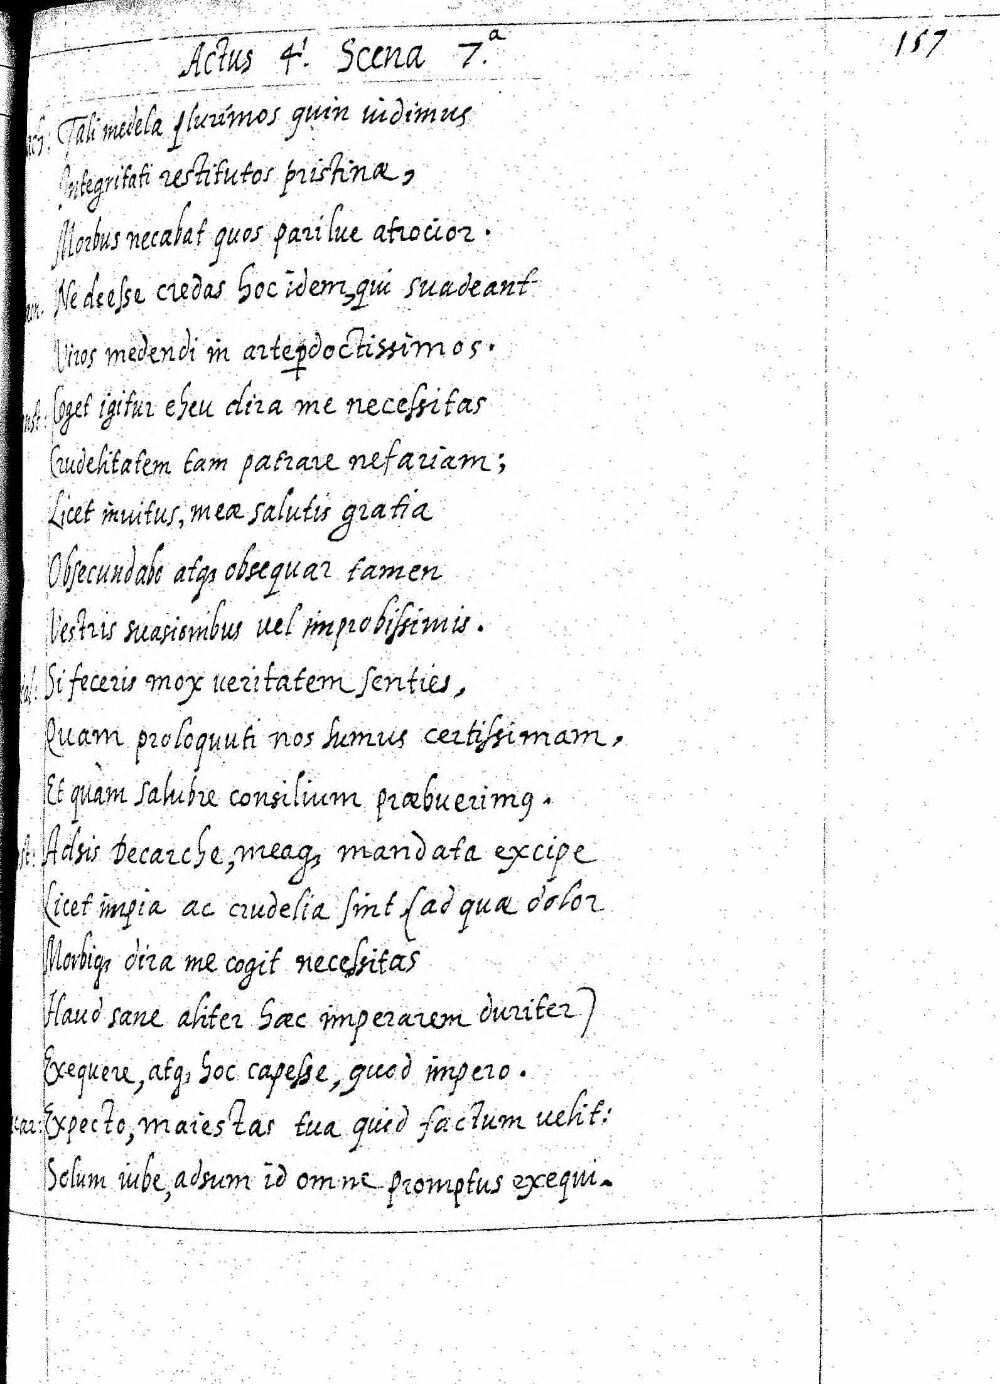 Actus 4.ⁱ Scena 7.ª
157
Tali medela plurimos quin uidimus
Integritati restitutos pristinæ,
Morbus necabat quos pari lue atrocior.
Ne deesse credas hoc idem, qui suadeant
Viros medendi in arte ꝑdoctissimos.
Coget igitur eheu dira me necessitas
Crudelitatem tam patrare nefariam;
Licet inuitus, meæ salutis gratia
Obsecundabo atqꝫ obsequar tamen
Vestris suasionibus uel improbissimis.
Si feceris mox ueritatem senties,
Quam proloquuti nos sumus certissimam,
Et quàm salubre consilium præbuerimꝰ.
Adsis Decarche, meaqꝫ mandata excipe
Licet impia ac crudelia sint (ad quæ dolor
Morbiqꝫ dira me cogit necessitas
Haud sane aliter hæc imperarem duriter)
Exequere, atqꝫ hoc capesse, quod impero.
car: Expecto, maiestas tua quid factum uelit:
Solum iube, adsum id omne promptus exequi.